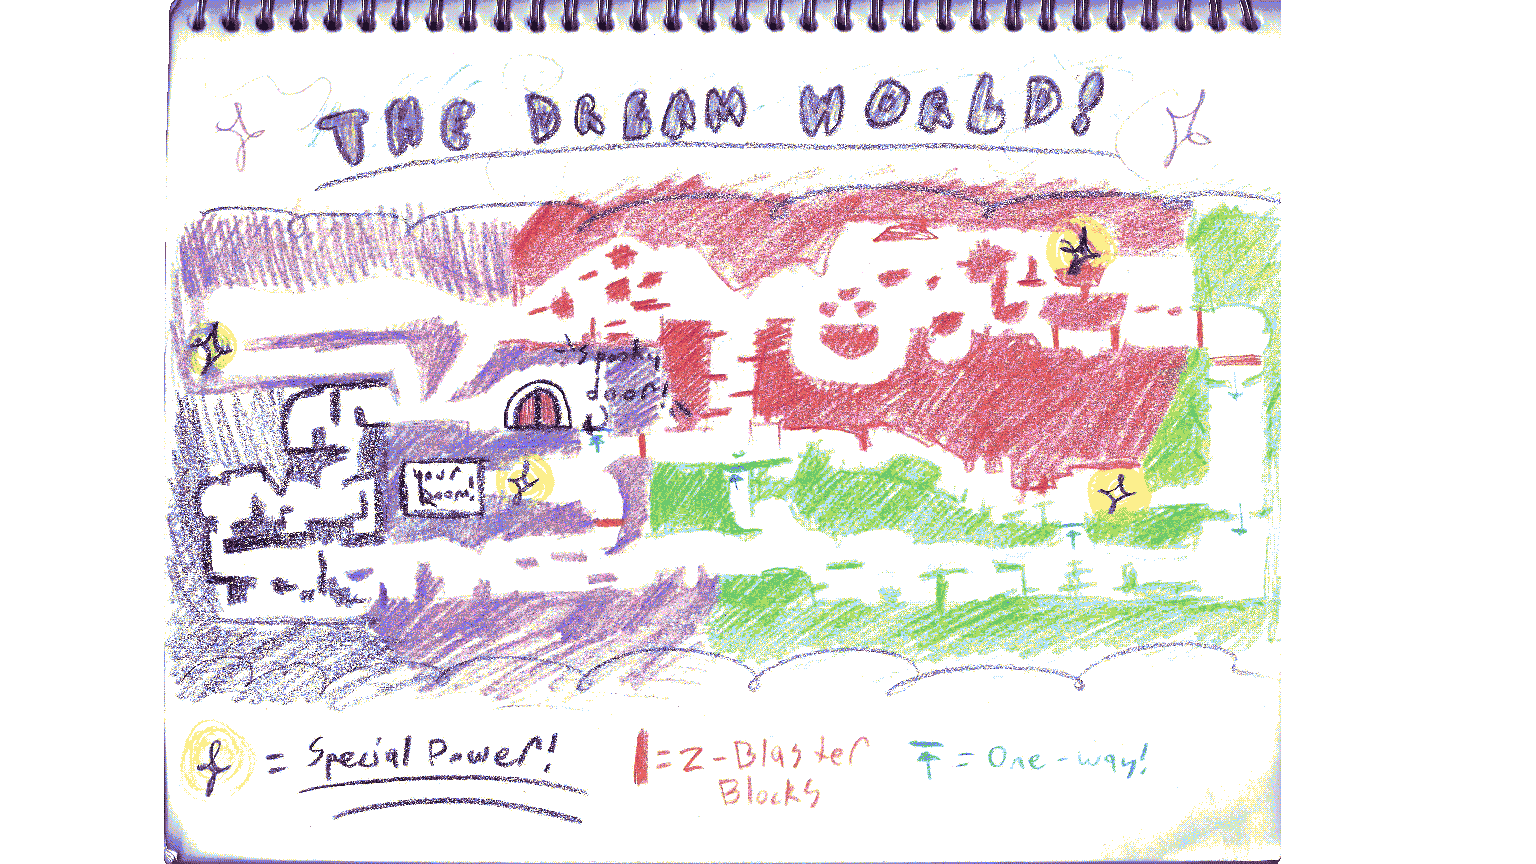 THE DREAM WORLD!
Spooky
door!
Your
Room!
= Special Power!
= Z-Blaster
Blocks
= One-way!